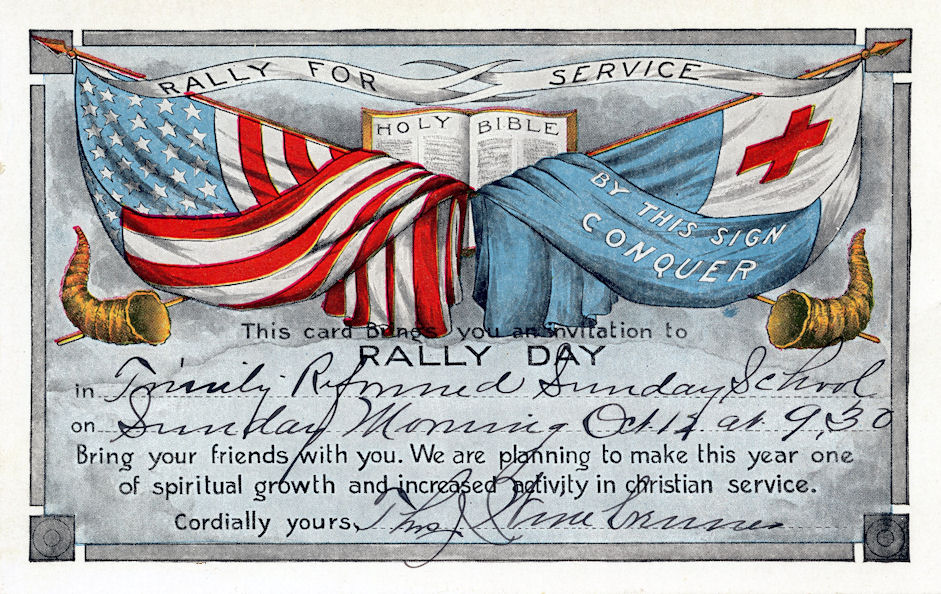 RALLY FOR SERVICE
HOLY BIBLE
BY THIS SIGN
CONQUER
This card Brings you an invitation to
RALLY DAY
in Trinity Reformed Sunday School
on Sunday Morning Oct. at 9,30
Bring your friends with you. We are planning to make this year one
of spiritual growth and increased activity in christian service.
Cordially yours, Thos